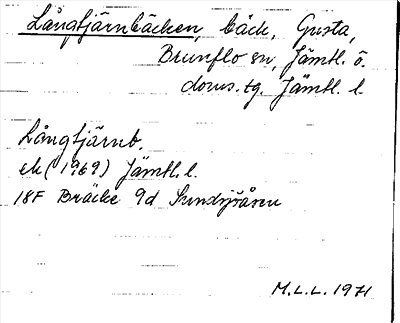 Långtjärnbäcken, bäck, Gusta,
Brunflo sn, Jämtl. ö.
doms. tg. Jämtl. l.
Långtjärnb.
ek (1969) Jämtl. l.
18F Bräcke 9d Sundsjöåsen
M.L.L. 1971